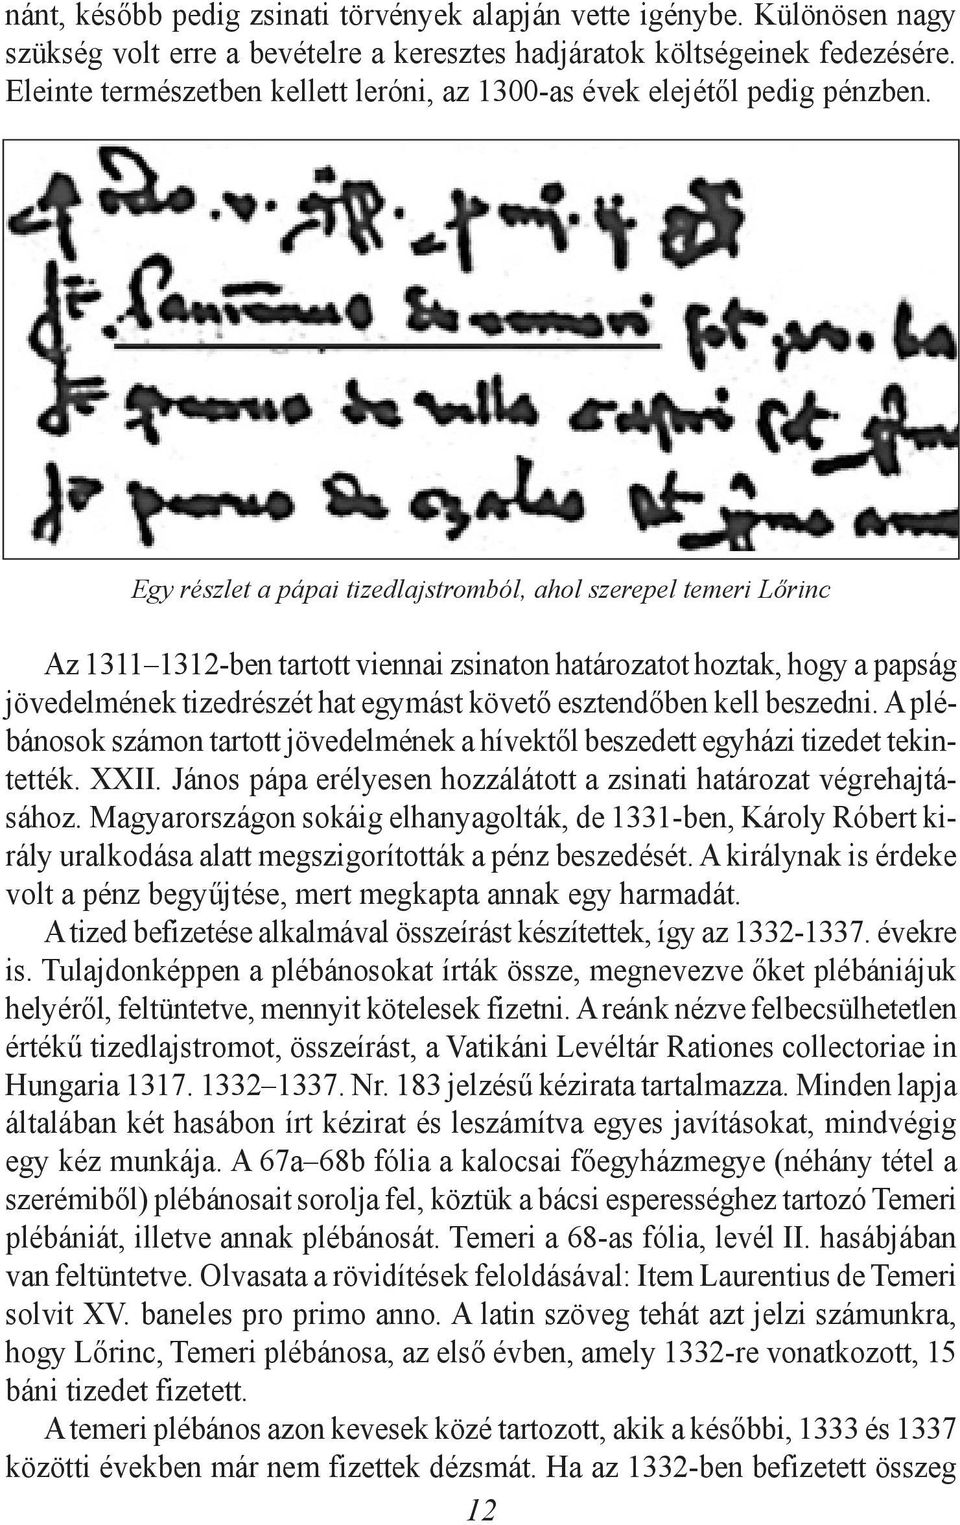 nánt, később pedig zsinati törvények alapján vette igénybe. Különösen nagy
szükség volt erre a bevételre a keresztes hadjáratok költségeinek fedezésére.
Eleinte természetben kellett leróni, az 1300-as évek elejétől pedig pénzben.
Egy részlet a pápai tizedlajstromból, ahol szerepel temeri Lőrinc
Az 1311–1312-ben tartott viennai zsinaton határozatot hoztak, hogy a papság
jövedelmének tizedrészét hat egymást követő esztendőben kell beszedni. A plé-
bánosok számon tartott jövedelmének a hívektől beszedett egyházi tizedet tekin-
tették. XXII. János pápa erélyesen hozzálátott a zsinati határozat végrehajtá-
sához. Magyarországon sokáig elhanyagolták, de 1331-ben, Károly Róbert ki-
rály uralkodása alatt megszigorították a pénz beszedését. A királynak is érdeke
volt a pénz begyűjtése, mert megkapta annak egy harmadát.
A tized befizetése alkalmával összeírást készítettek, így az 1332-1337. évekre
is. Tulajdonképpen a plébánosokat írták össze, megnevezve őket plébániájuk
helyéről, feltüntetve, mennyit kötelesek fizetni. A reánk nézve felbecsülhetetlen
értékű tizedlajstromot, összeírást, a Vatikáni Levéltár Rationes collectoriae in
Hungaria 1317. 1332–1337. Nr. 183 jelzésű kézirata tartalmazza. Minden lapja
általában két hasábon írt kézirat és leszámítva egyes javításokat, mindvégig
egy kéz munkája. A 67a–68b fólia a kalocsai főegyházmegye (néhány tétel a
szerémiből) plébánosait sorolja fel, köztük a bácsi esperességhez tartozó Temeri
plébániát, illetve annak plébánosát. Temeri a 68-as fólia, levél II. hasábjában
van feltüntetve. Olvasata a rövidítések feloldásával: Item Laurentius de Temeri
solvit XV. baneles pro primo anno. A latin szöveg tehát azt jelzi számunkra,
hogy Lőrinc, Temeri plébánosa, az első évben, amely 1332-re vonatkozott, 15
báni tizedet fizetett.
A temeri plébános azon kevesek közé tartozott, akik a későbbi, 1333 és 1337
közötti években már nem fizettek dézsmát. Ha az 1332-ben befizetett összeg
12